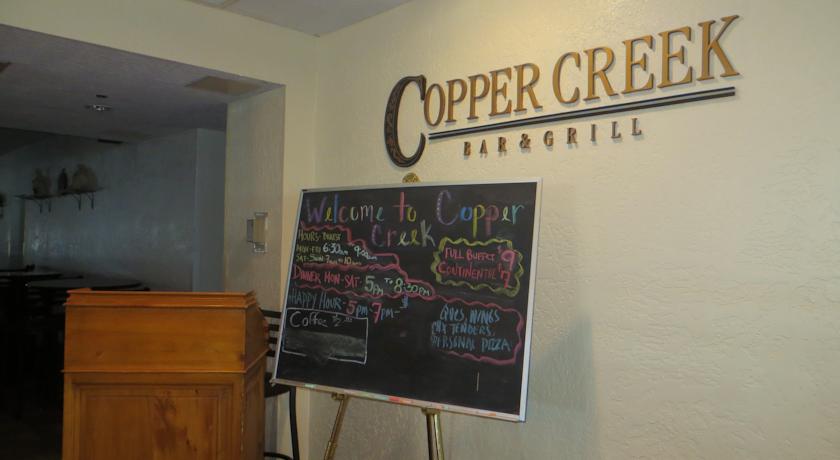 COPPER CREEK
BAR & GRILL
Welcome to Copper
Creek
HOURS-
MON-FRI 6:30am 9:00am
SAT-SUN 7am to 10am
FULL BUFFET $9
CONTINENTAL $7
DINNER MON-SAT- 5pm TO 8:30pm
HAPPY HOUR- 5pm-7pm-
WINGS,
TENDERS,
PERSONAL PIZZA
Coffee